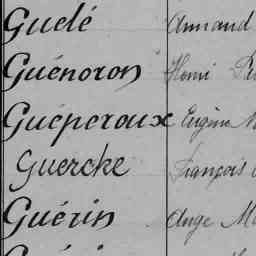 Guelé Armand
Guénoron Henri
Guéperoux Eugène
Guercke François
Guérin Ange